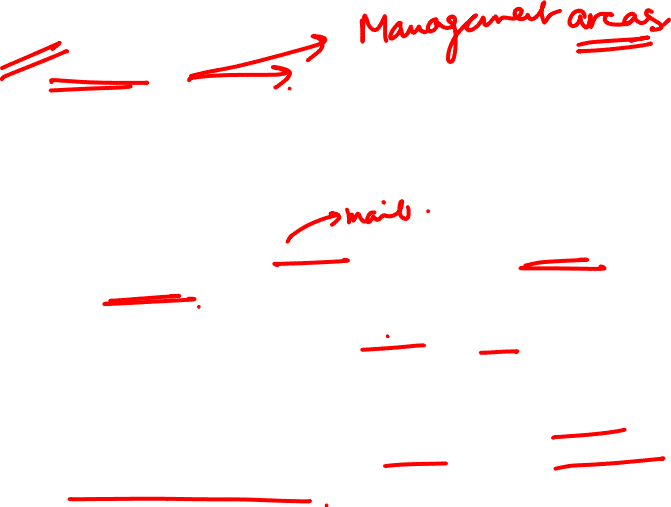 Management areas
main.